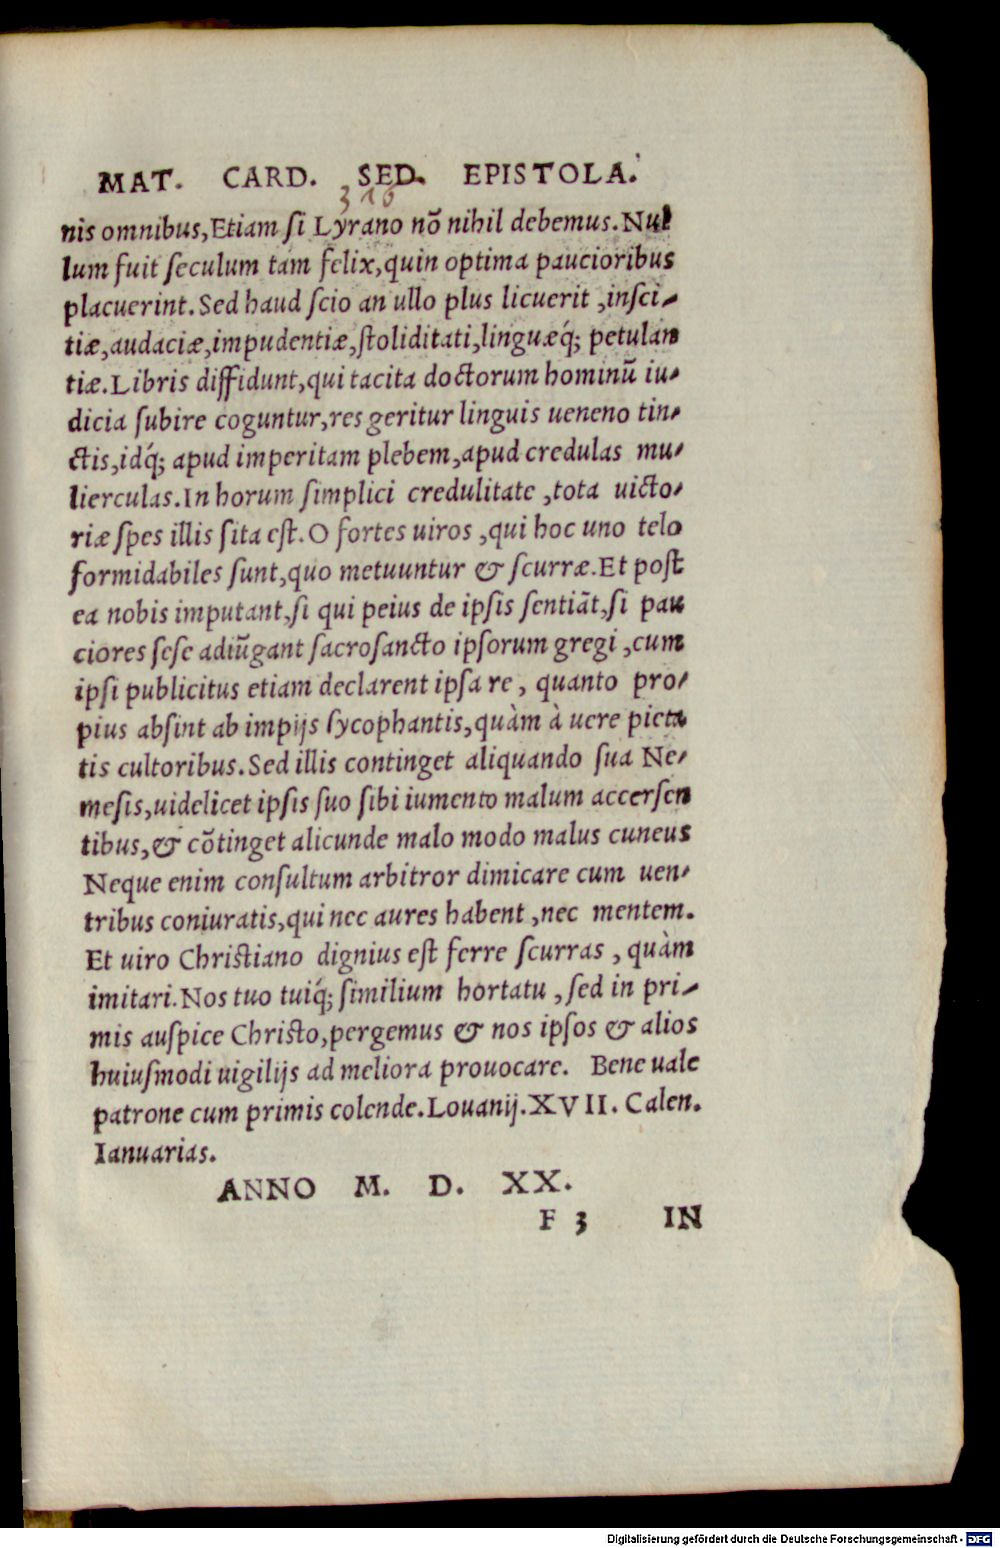 MAT. CARD. SED. EPISTOLA.
316
nis omnibus, Etiam si Lyrano nõ nihil debemus. Nul
lum fuit seculum tam felix, quin optima paucioribus
placuerint. Sed haud scio an ullo plus licuerit, insci-
tiæ, audaciæ, impudentiæ, stoliditati, linguæq́; petulan
tiæ. Libris diffidunt, qui tacita doctorum hominũ iu-
dicia subire coguntur, res geritur linguis ueneno tin-
ctis, idq́; apud imperitam plebem, apud credulas mu-
lierculas. In horum simplici credulitate, tota uicto-
riæ spes illis sita est. O fortes uiros, qui hoc uno telo
formidabiles sunt, quo metuuntur & scurræ. Et post
ea nobis imputant, si qui peius de ipsis sentiãt, si pau
ciores sese adiũgant sacrosancto ipsorum gregi, cum
ipsi publicitus etiam declarent ipsa re, quanto pro-
pius absint ab impijs sycophantis, quàm à uere pieta
tis cultoribus. Sed illis continget aliquando sua Ne-
mesis, uidelicet ipsis suo sibi iumento malum accersen
tibus, & cõtinget alicunde malo modo malus cuneus
Neque enim consultum arbitror dimicare cum uen-
tribus coniuratis, qui nec aures habent, nec mentem.
Et uiro Christiano dignius est ferre scurras, quàm
imitari. Nos tuo tuiq́; similium hortatu, sed in pri-
mis auspice Christo, pergemus & nos ipsos & alios
huiusmodi uigilijs ad meliora prouocare. Bene uale
patrone cum primis colende. Louanij. XVII. Calen.
Ianuarias.
ANNO M. D. XX.
F 3 IN
Digitalisierung gefördert durch die Deutsche Forschungsgemeinschaft - DFG